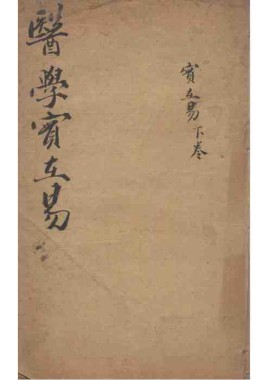 醫學實在易
實在易下卷